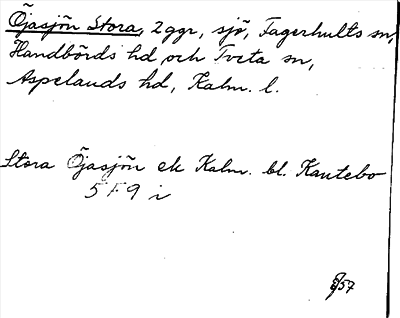 Öjasjön Stora, 2 ggr, sjö, Fagerhults sn,
Handbörds hd och Tveta sn,
Aspelands hd, Kalm. l.
Stora Öjasjön ek Kalm. bl. Kantebo
5 F 9 i
57